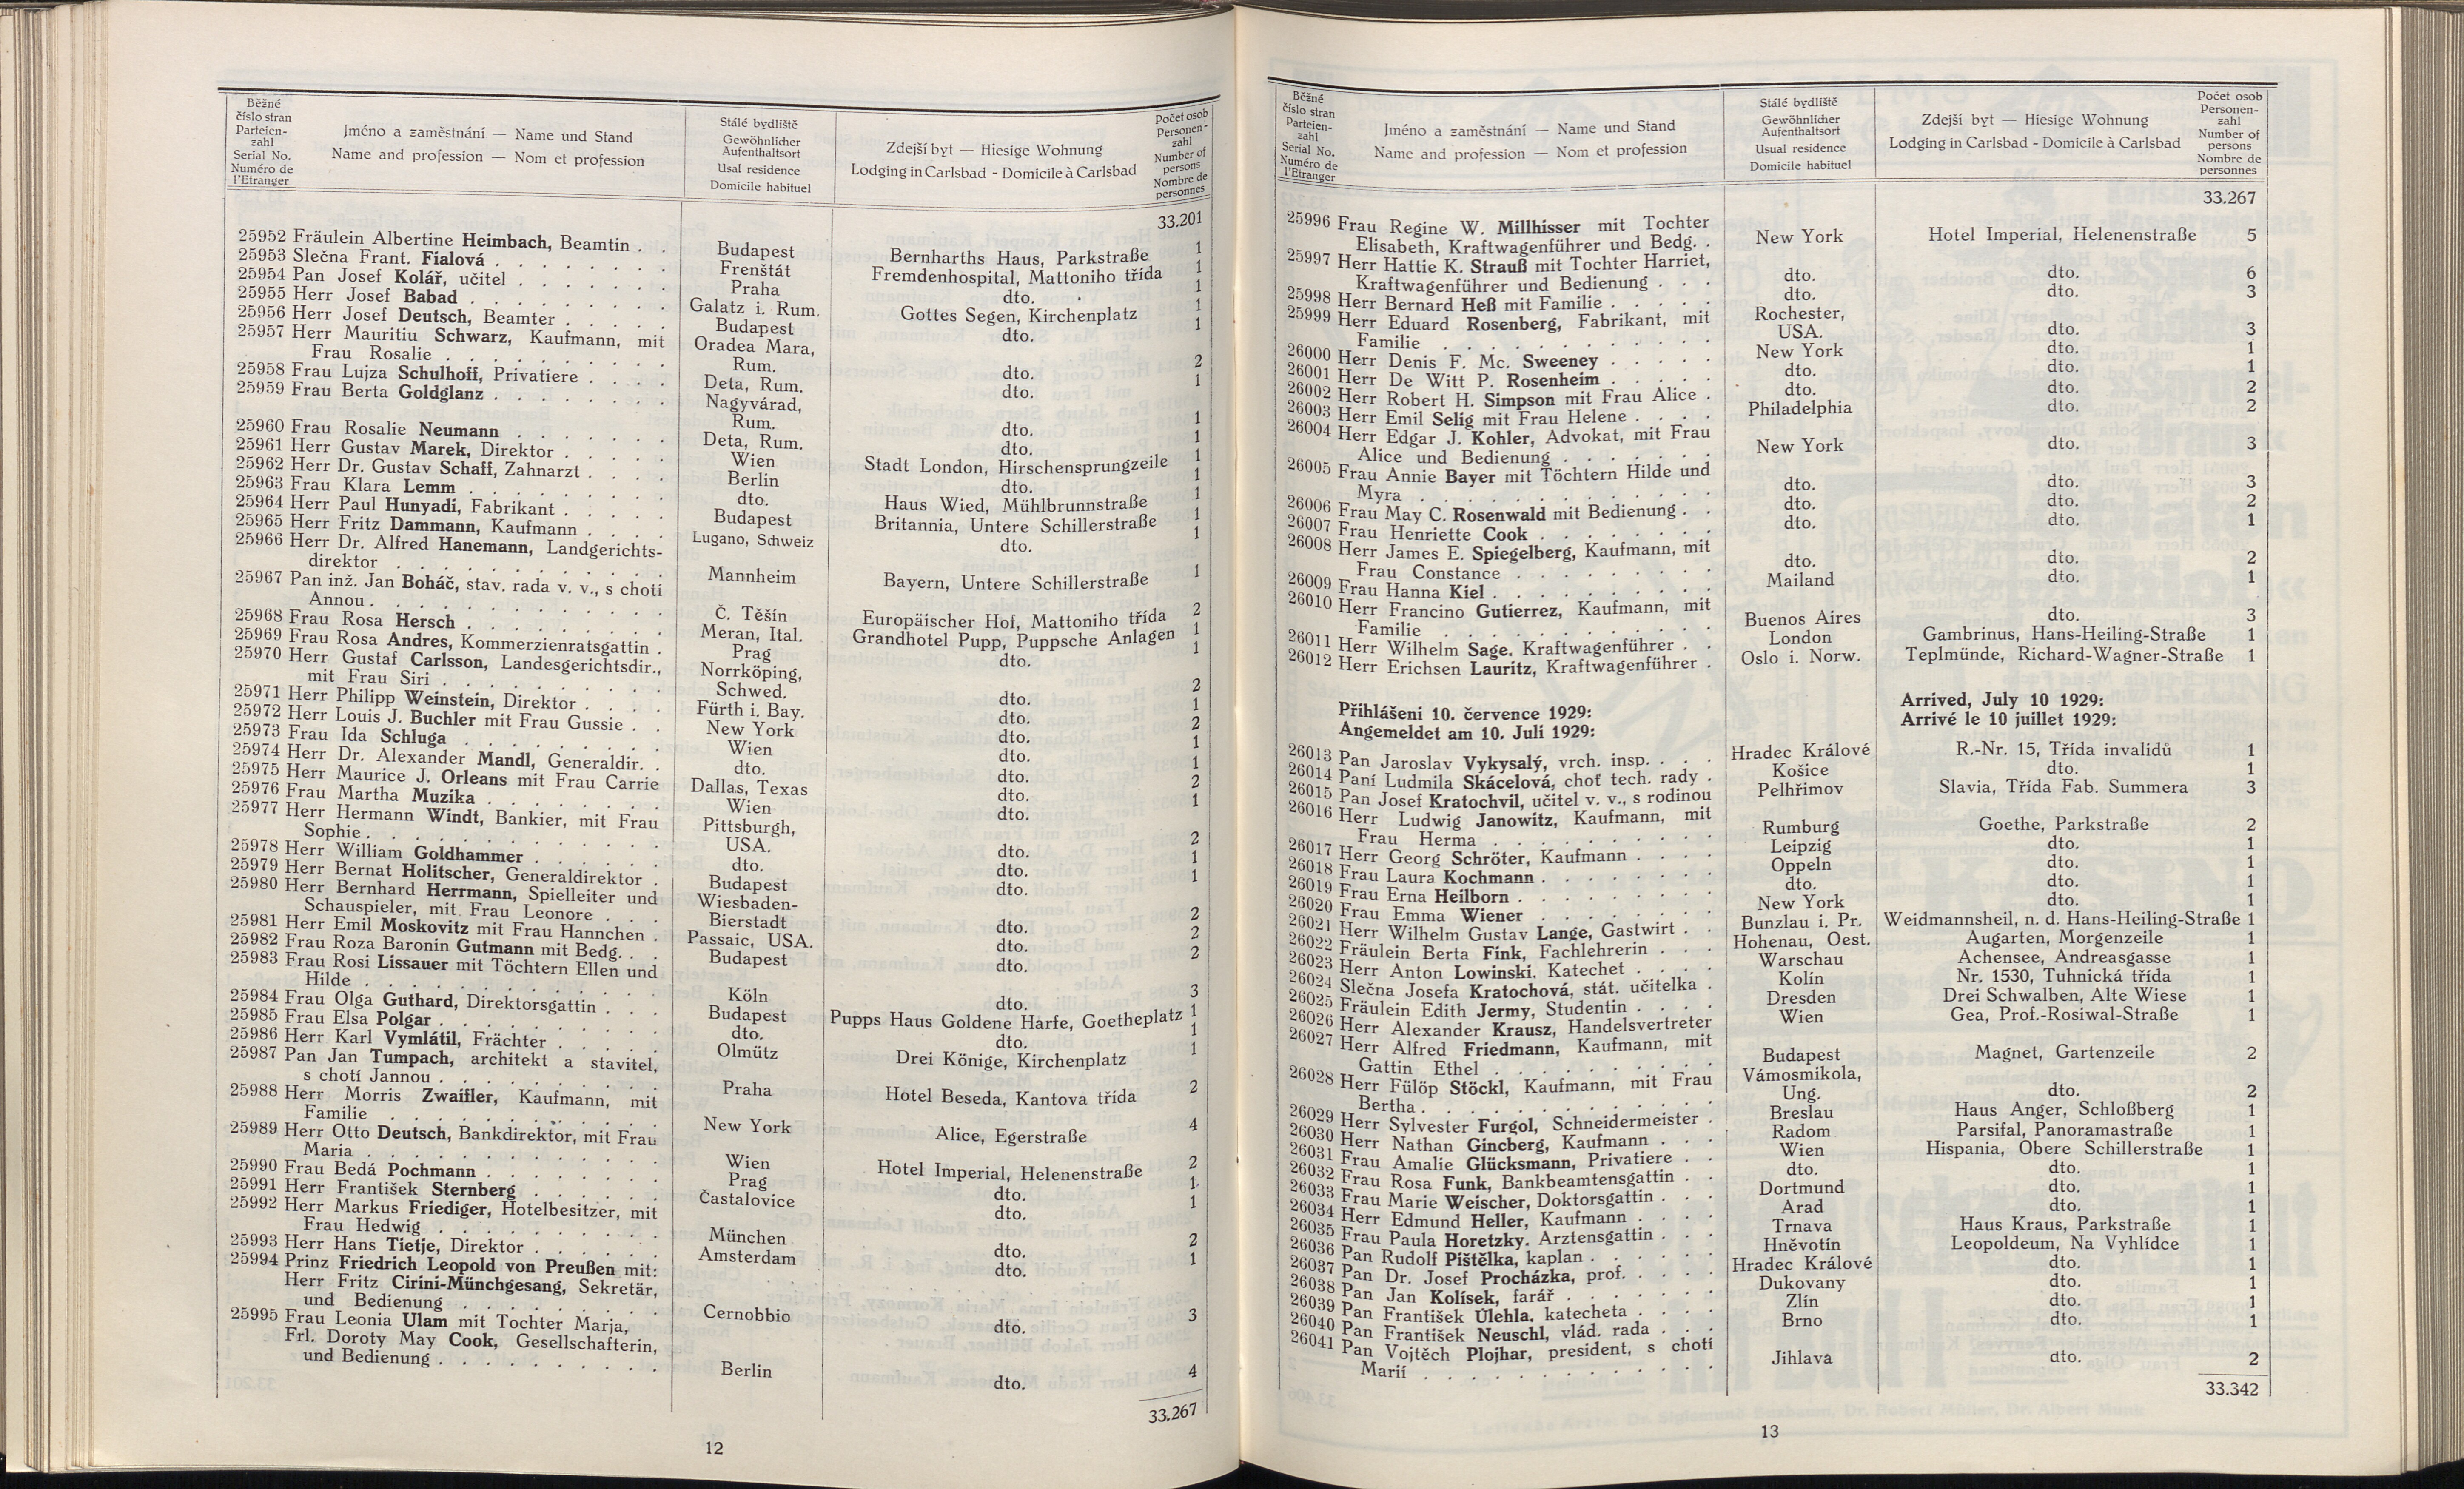 Běžné číslo stran Parteien-zahl Serial No. Numéro de l'Etranger
Jméno a zaměstnání — Name und Stand
Name and profession — Nom et profession
Stálé bydliště Gewöhnlicher Aufenthaltsort Usal residence Domicile habituel
Zdejší byt — Hiesige Wohnung
Lodging in Carlsbad - Domicile à Carlsbad
Počet osob Personen-zahl Number of persons Nombre de personnes
33.201
25952 Fräulein Albertine Heimbach, Beamtin . . Budapest Bernharths Haus, Parkstraße 1
25953 Slečna Frant. Fialová . . . Frenštát Fremdenhospital, Mattoniho třída 1
25954 Pan Josef Kolář, učitel . . . Praha dto. 1
25955 Herr Josef Babad . . . Galatz i. Rum. Gottes Segen, Kirchenplatz 1
25956 Herr Josef Deutsch, Beamter . . . Budapest dto. 1
25957 Herr Mauritiu Schwarz, Kaufmann, mit Oradea Mara,
Frau Rosalie . . . Rum. dto. 2
25958 Frau Lujza Schulhoff, Privatiere . . . Deta, Rum. dto. 1
25959 Frau Berta Goldglanz . . . Nagyvárad,
Rum. dto. 1
25960 Frau Rosalie Neumann . . . Deta, Rum. dto. 1
25961 Herr Gustav Marek, Direktor . . . Wien Stadt London, Hirschensprungzeile 1
25962 Herr Dr. Gustav Schaff, Zahnarzt . . . Berlin dto. 1
25963 Frau Klara Lemm . . . dto. Haus Wied, Mühlbrunnstraße 1
25964 Herr Paul Hunyadi, Fabrikant . . . Budapest Britannia, Untere Schillerstraße 1
25965 Herr Fritz Dammann, Kaufmann . . . Lugano, Schweiz dto. 1
25966 Herr Dr. Alfred Hanemann, Landgerichts-
direktor . . . Mannheim Bayern, Untere Schillerstraße 1
25967 Pan inž. Jan Boháč, stav. rada v. v., s chotí
Annou . . . Č. Těšín Europäischer Hof, Mattoniho třída 2
25968 Frau Rosa Hersch . . . Meran, Ital. Grandhotel Pupp, Puppsche Anlagen 1
25969 Frau Rosa Andres, Kommerzienratsgattin . Prag dto. 1
25970 Herr Gustaf Carlsson, Landesgerichtsdir., Norrköping,
mit Frau Siri . . . Schwed. dto. 2
25971 Herr Philipp Weinstein, Direktor . . . Fürth i. Bay. dto. 1
25972 Herr Louis J. Buchler mit Frau Gussie . . New York dto. 2
25973 Frau Ida Schluga . . . Wien dto. 1
25974 Herr Dr. Alexander Mandl, Generaldir. . dto. dto. 1
25975 Herr Maurice J. Orleans mit Frau Carrie Dallas, Texas dto. 2
25976 Frau Martha Muzika . . . Wien dto. 1
25977 Herr Hermann Windt, Bankier, mit Frau Pittsburgh,
Sophie . . . USA. dto. 2
25978 Herr William Goldhammer . . . dto. dto. 1
25979 Herr Bernat Holitscher, Generaldirektor . Budapest dto. 1
25980 Herr Bernhard Herrmann, Spielleiter und Wiesbaden-
Schauspieler, mit Frau Leonore . . . Bierstadt dto. 2
25981 Herr Emil Moskovitz mit Frau Hannchen . Passaic, USA. dto. 2
25982 Frau Roza Baronin Gutmann mit Bedg. . . Budapest dto. 2
25983 Frau Rosi Lissauer mit Töchtern Ellen und
Hilde . . . Köln dto. 3
25984 Frau Olga Guthard, Direktorsgattin . . . Budapest Pupps Haus Goldene Harfe, Goetheplatz 1
25985 Frau Elsa Polgar . . . dto. dto. 1
25986 Herr Karl Vymlátil, Frächter . . . Olmütz Drei Könige, Kirchenplatz 1
25987 Pan Jan Tumpach, architekt a stavitel,
s chotí Jannou . . . Praha Hotel Beseda, Kantova třída 2
25988 Herr Morris Zwaifler, Kaufmann, mit
Familie . . . New York Alice, Egerstraße 4
25989 Herr Otto Deutsch, Bankdirektor, mit Frau
Maria . . . Wien Hotel Imperial, Helenenstraße 2
25990 Frau Bedá Pochmann . . . Prag dto. 1
25991 Herr František Sternberg . . . Častalovice dto. 1
25992 Herr Markus Friediger, Hotelbesitzer, mit
Frau Hedwig . . . München dto. 2
25993 Herr Hans Tietje, Direktor . . . Amsterdam dto. 1
25994 Prinz Friedrich Leopold von Preußen mit:
Herr Fritz Cirini-Münchgesang, Sekretär,
und Bedienung . . . Cernobbio dto. 3
25995 Frau Leonia Ulam mit Tochter Marja,
Frl. Doroty May Cook, Gesellschafterin,
und Bedienung . . . Berlin dto. 4
33.267
12
Běžné číslo stran Parteien-zahl Serial No. Numéro de l'Etranger
Jméno a zaměstnání — Name und Stand
Name and profession — Nom et profession
Stálé bydliště Gewöhnlicher Aufenthaltsort Usual residence Domicile habituel
Zdejší byt — Hiesige Wohnung
Lodging in Carlsbad - Domicile à Carlsbad
Počet osob Personen-zahl Number of persons Nombre de personnes
33.267
25996 Frau Regine W. Millhisser mit Tochter
Elisabeth, Kraftwagenführer und Bedg. . New York Hotel Imperial, Helenenstraße 5
25997 Herr Hattie K. Strauß mit Tochter Harriet,
Kraftwagenführer und Bedienung . . . dto. dto. 6
25998 Herr Bernard Heß mit Familie . . . dto. dto. 3
25999 Herr Eduard Rosenberg, Fabrikant, mit Rochester,
Familie . . . USA. dto. 3
26000 Herr Denis F. Mc. Sweeney . . . New York dto. 1
26001 Herr De Witt P. Rosenheim . . . dto. dto. 1
26002 Herr Robert H. Simpson mit Frau Alice . dto. dto. 2
26003 Herr Emil Selig mit Frau Helene . . . Philadelphia dto. 2
26004 Herr Edgar J. Kohler, Advokat, mit Frau
Alice und Bedienung . . . New York dto. 3
26005 Frau Annie Bayer mit Töchtern Hilde und
Myra . . . dto. dto. 3
26006 Frau May C. Rosenwald mit Bedienung . . dto. dto. 2
26007 Frau Henriette Cook . . . dto. dto. 1
26008 Herr James E. Spiegelberg, Kaufmann, mit
Frau Constance . . . dto. dto. 2
26009 Frau Hanna Kiel . . . Mailand dto. 1
26010 Herr Francino Gutierrez, Kaufmann, mit
Familie . . . Buenos Aires dto. 3
26011 Herr Wilhelm Sage. Kraftwagenführer . . London Gambrinus, Hans-Heiling-Straße 1
26012 Herr Erichsen Lauritz, Kraftwagenführer . Oslo i. Norw. Teplmünde, Richard-Wagner-Straße 1
Přihlášeni 10. července 1929: Arrived, July 10 1929:
Angemeldet am 10. Juli 1929: Arrivé le 10 juillet 1929:
26013 Pan Jaroslav Vykysalý, vrch. insp. . . . Hradec Králové R.-Nr. 15, Třída invalidů 1
26014 Paní Ludmila Skácelová, choť tech. rady . Košice dto. 1
26015 Pan Josef Kratochvil, učitel v. v., s rodinou Pelhřimov Slavia, Třída Fab. Summera 3
26016 Herr Ludwig Janowitz, Kaufmann, mit
Frau Herma . . . Rumburg Goethe, Parkstraße 2
26017 Herr Georg Schröter, Kaufmann . . . Leipzig dto. 1
26018 Frau Laura Kochmann . . . Oppeln dto. 1
26019 Frau Erna Heilborn . . . dto. dto. 1
26020 Frau Emma Wiener . . . New York dto. 1
26021 Herr Wilhelm Gustav Lange, Gastwirt . . Bunzlau i. Pr. Weidmannsheil, n. d. Hans-Heiling-Straße 1
26022 Fräulein Berta Fink, Fachlehrerin . . . Hohenau, Oest. Augarten, Morgenzeile 1
26023 Herr Anton Lowinski. Katechet . . . Warschau Achensee, Andreasgasse 1
26024 Slečna Josefa Kratochová, stát. učitelka . Kolín Nr. 1530, Tuhnická třída 1
26025 Fräulein Edith Jermy, Studentin . . . Dresden Drei Schwalben, Alte Wiese 1
26026 Herr Alexander Krausz, Handelsvertreter Wien Gea, Prof.-Rosiwal-Straße 1
26027 Herr Alfred Friedmann, Kaufmann, mit
Gattin Ethel . . . Budapest Magnet, Gartenzeile 2
26028 Herr Fülöp Stöckl, Kaufmann, mit Frau Vámosmikola,
Bertha . . . Ung. dto. 2
26029 Herr Sylvester Furgol, Schneidermeister . Breslau Haus Anger, Schloßberg 1
26030 Herr Nathan Gincberg, Kaufmann . . . Radom Parsifal, Panoramastraße 1
26031 Frau Amalie Glücksmann, Privatiere . . Wien Hispania, Obere Schillerstraße 1
26032 Frau Rosa Funk, Bankbeamtensgattin . . dto. dto. 1
26033 Frau Marie Weischer, Doktorsgattin . . . Dortmund dto. 1
26034 Herr Edmund Heller, Kaufmann . . . Arad dto. 1
26035 Frau Paula Horetzky. Arztensgattin . . . Trnava Haus Kraus, Parkstraße 1
26036 Pan Rudolf Pištělka, kaplan . . . Hněvotín Leopoldeum, Na Vyhlídce 1
26037 Pan Dr. Josef Procházka, prof. . . . Hradec Králové dto. 1
26038 Pan Jan Kolísek, farář . . . Dukovany dto. 1
26039 Pan František Úlehla. katecheta . . . Zlín dto. 1
26040 Pan František Neuschl, vlád. rada . . . Brno dto. 1
26041 Pan Vojtěch Plojhar, president, s chotí
Marií . . . Jihlava dto. 2
33.342
13